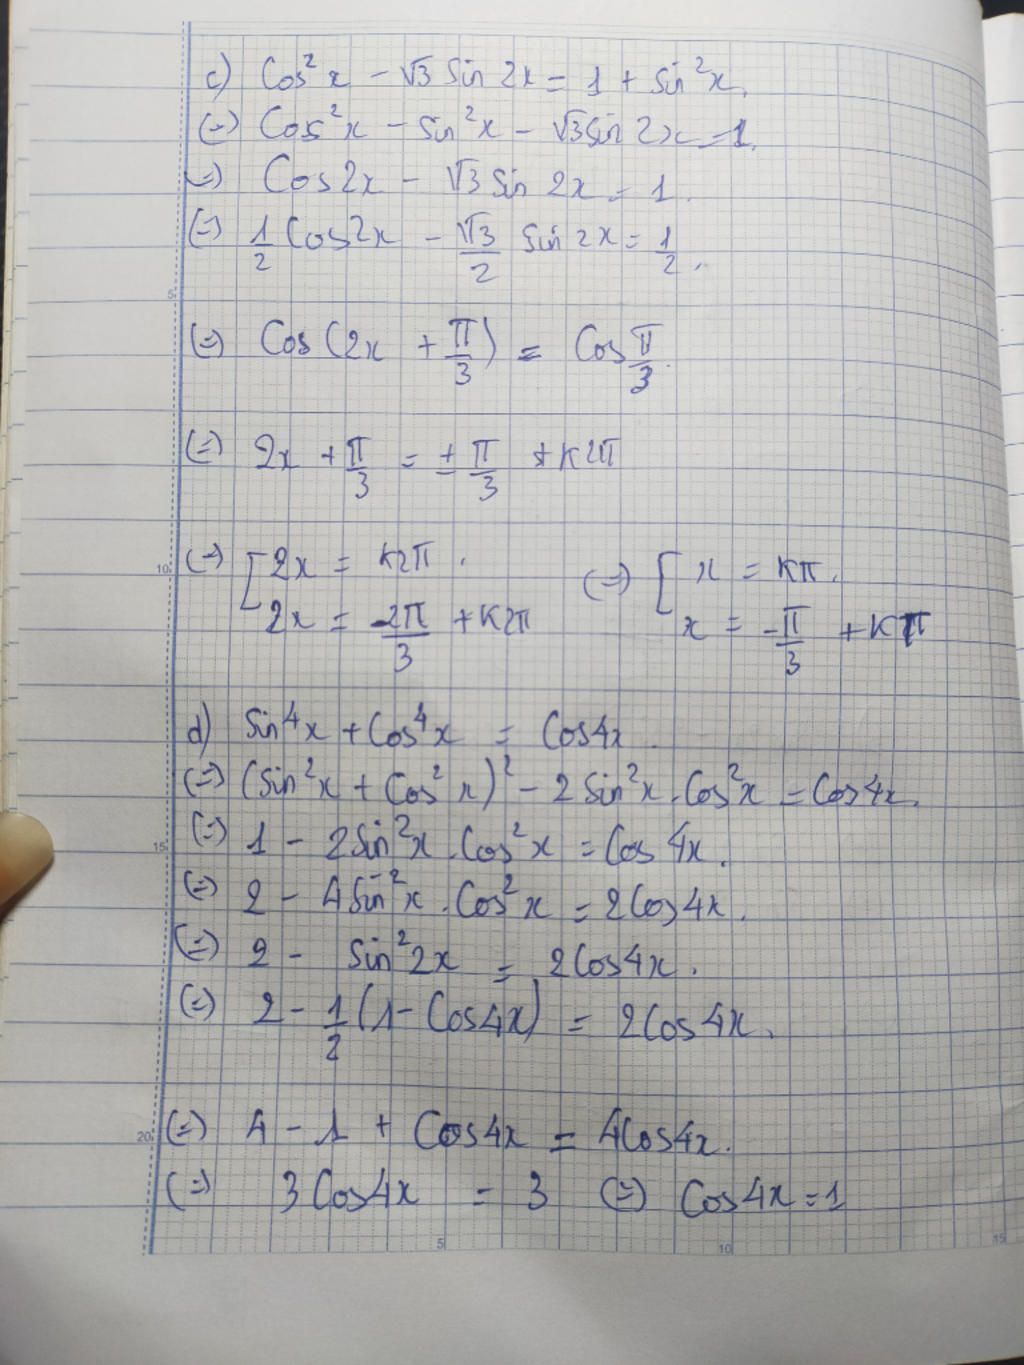 c) Cos²x - √3 Sin 2x = 1 + Sin²x.
(=) Cos²x - Sin²x - √3 Sin 2x = 1.
(=) Cos2x - √3 Sin 2x = 1.
(=) 1/2 Cos2x - √3/2 Sin 2x = 1/2.
5
(=) Cos(2x + π/3) = Cos π/3.
(=) 2x + π/3 = ± π/3 + k2π
10 (=) [ 2x = k2π. (=) [ x = kπ.
2x = -2π/3 + k2π x = -π/3 + kπ
d) Sin⁴x + Cos⁴x = Cos4x.
(=) (Sin²x + Cos²x)² - 2Sin²x.Cos²x = Cos4x.
15 (=) 1 - 2Sin²x.Cos²x = Cos 4x.
(=) 2 - 4Sin²x.Cos²x = 2Cos4x.
(=) 2 - Sin²2x = 2Cos4x.
(=) 2 - 1/2(1 - Cos4x) = 2Cos4x.
20 (=) 4 - 1 + Cos4x = 4Cos4x.
(=) 3Cos4x = 3 (=) Cos4x = 1
5 10 15